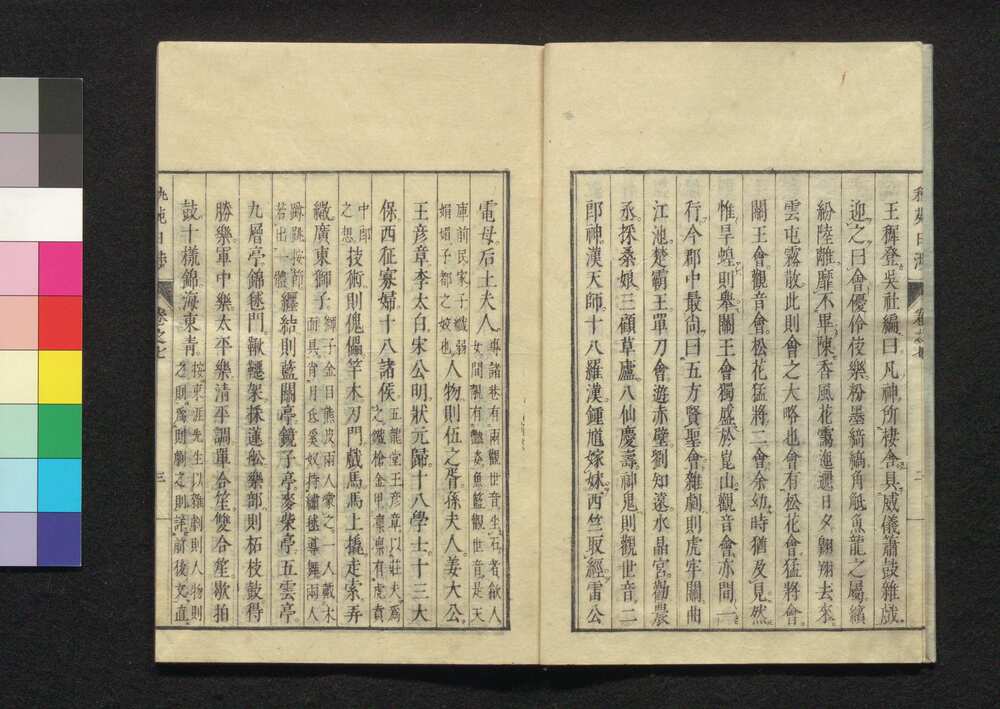 王穉登吳社編曰凡神所棲舍具威儀簫鼓雜戲
迎之曰會優伶伎樂粉墨綺縞角觝魚龍之屬繽
紛陸離靡不畢陳香風花靄迤邐日夕翱翔去來
雲屯霧散此則會之大略也會有松花會猛將會
關王會觀音會松花猛將二會余幼時猶及見然
惟旱蝗則舉關王會獨盛於崑山觀音會亦間一
行今郡中最尙曰五方賢聖會雜劇則虎牢關曲
江池楚霸王單刀會遊赤壁劉知遠水晶宮勸農
丞採桑娘三顧草廬八仙慶壽神鬼則觀世音二
郎神漢天師十八羅漢鍾馗嫁妹西竺取經雷公
電母后土夫人專諸巷有兩觀世音坐石者歛人
女間觀有豔姿魚籃觀世音是天
庫前民家子孅弱
娟娟子都之姣也人物則伍子胥孫夫人姜太公
王彥章李太白宋公明狀元歸十八學士十三太
保西征寡婦十八諸侯五龍堂王彥章以莊夫爲
之鐵槍金甲稟稟有虎賁
中郎
之想技術則傀儡竿木刃門戲馬馬上撬走索弄
繖廣東獅子獅子金目熊皮兩人蒙之一人戴木
面具肖月氐奚奴持繡毬導舞兩人
蹲跳按節
若出一體纏結則藍關亭鏡子亭麥柴亭五雲亭
九層亭錦毬門鞦韆架採蓮船樂部則柘枝鼓得
勝樂軍中樂太平樂淸平調單合笙雙合笙歇拍
鼓十樣錦海東青按東涯先生以雜劇則人物則
之則爲則劇之則謠前後文直
卷之七
三